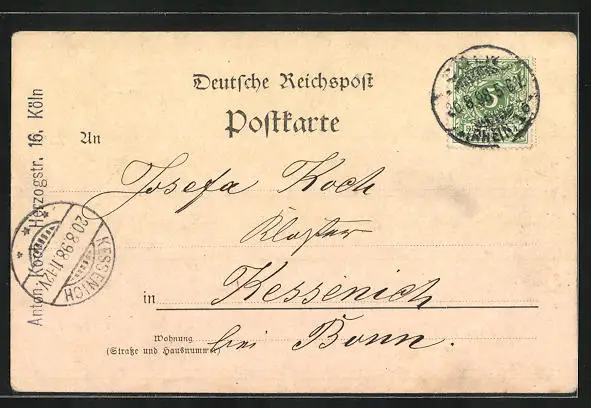 Deutsche Reichspost
Postkarte
An
Josefa Koch
Kloster
in Kessenich
Wohnung
(Straße und Hausnummer)
bei Bonn.
Anton Koch, Herzogstr. 16. Köln
KESSENICH
20.8.98.11-12V.
5